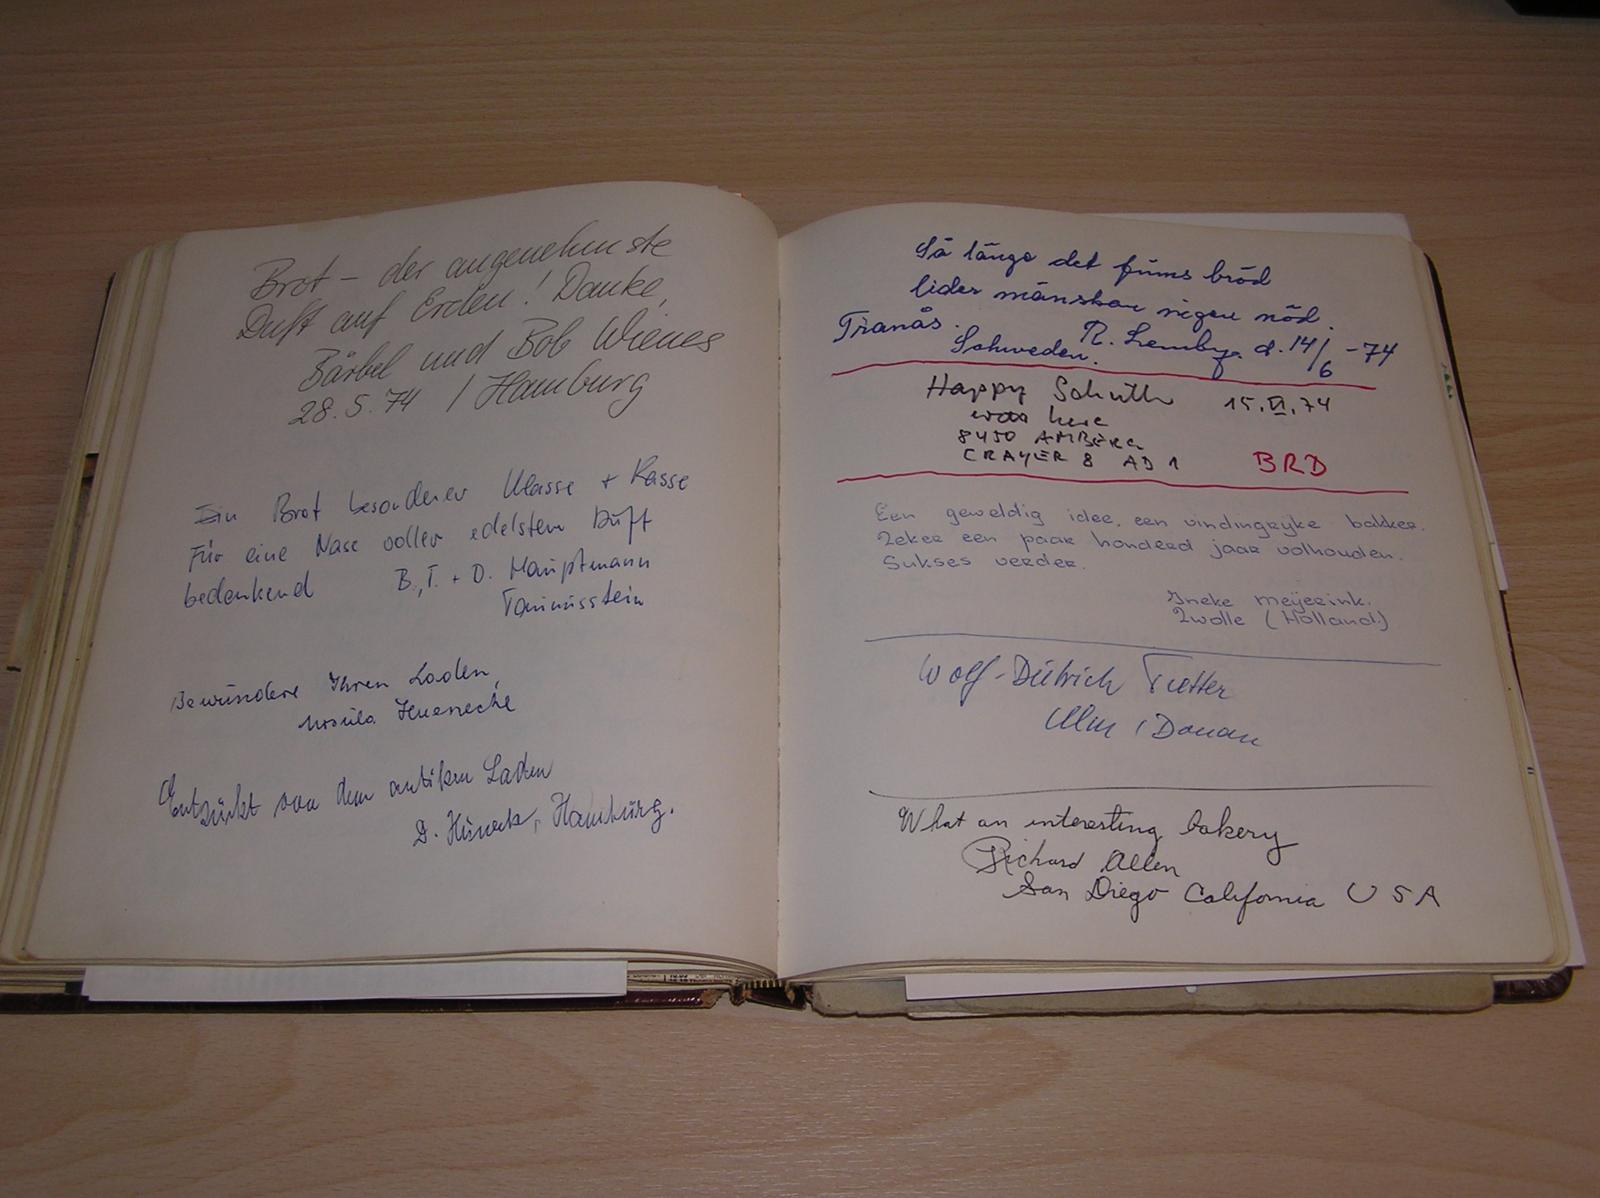 Brot – der angenehmste
Duft auf Erden! Danke,
Bärbel und Bob Wienes
28.5.74 / Hamburg
Ein Brot besonderer Klasse + Rasse
Für eine Nase voller edelstem Duft
bedankend B., T. + D. Hauptmann
Taunusstein
Bewundere Ihren Laden,
Ursula
Entzückt von dem antiken Laden
D. Hamburg.
Så länge det finns bröd
lider mänskan ingen nöd.
Tranås. R. d. 14/6 -74
Schweden.
Happy Schuth 15.VI.74
was here
8450 AMBERG
CRAYER 8 AD 1 BRD
Een geweldig idee, een vindingrijke bakker.
Zeker een paar honderd jaar volhouden.
Sukses verder.
Ineke Meijerink.
Zwolle (Holland)
Wolf-Dietrich Tretter
Ulm / Donau
What an interesting bakery
Richard Allen
San Diego California USA